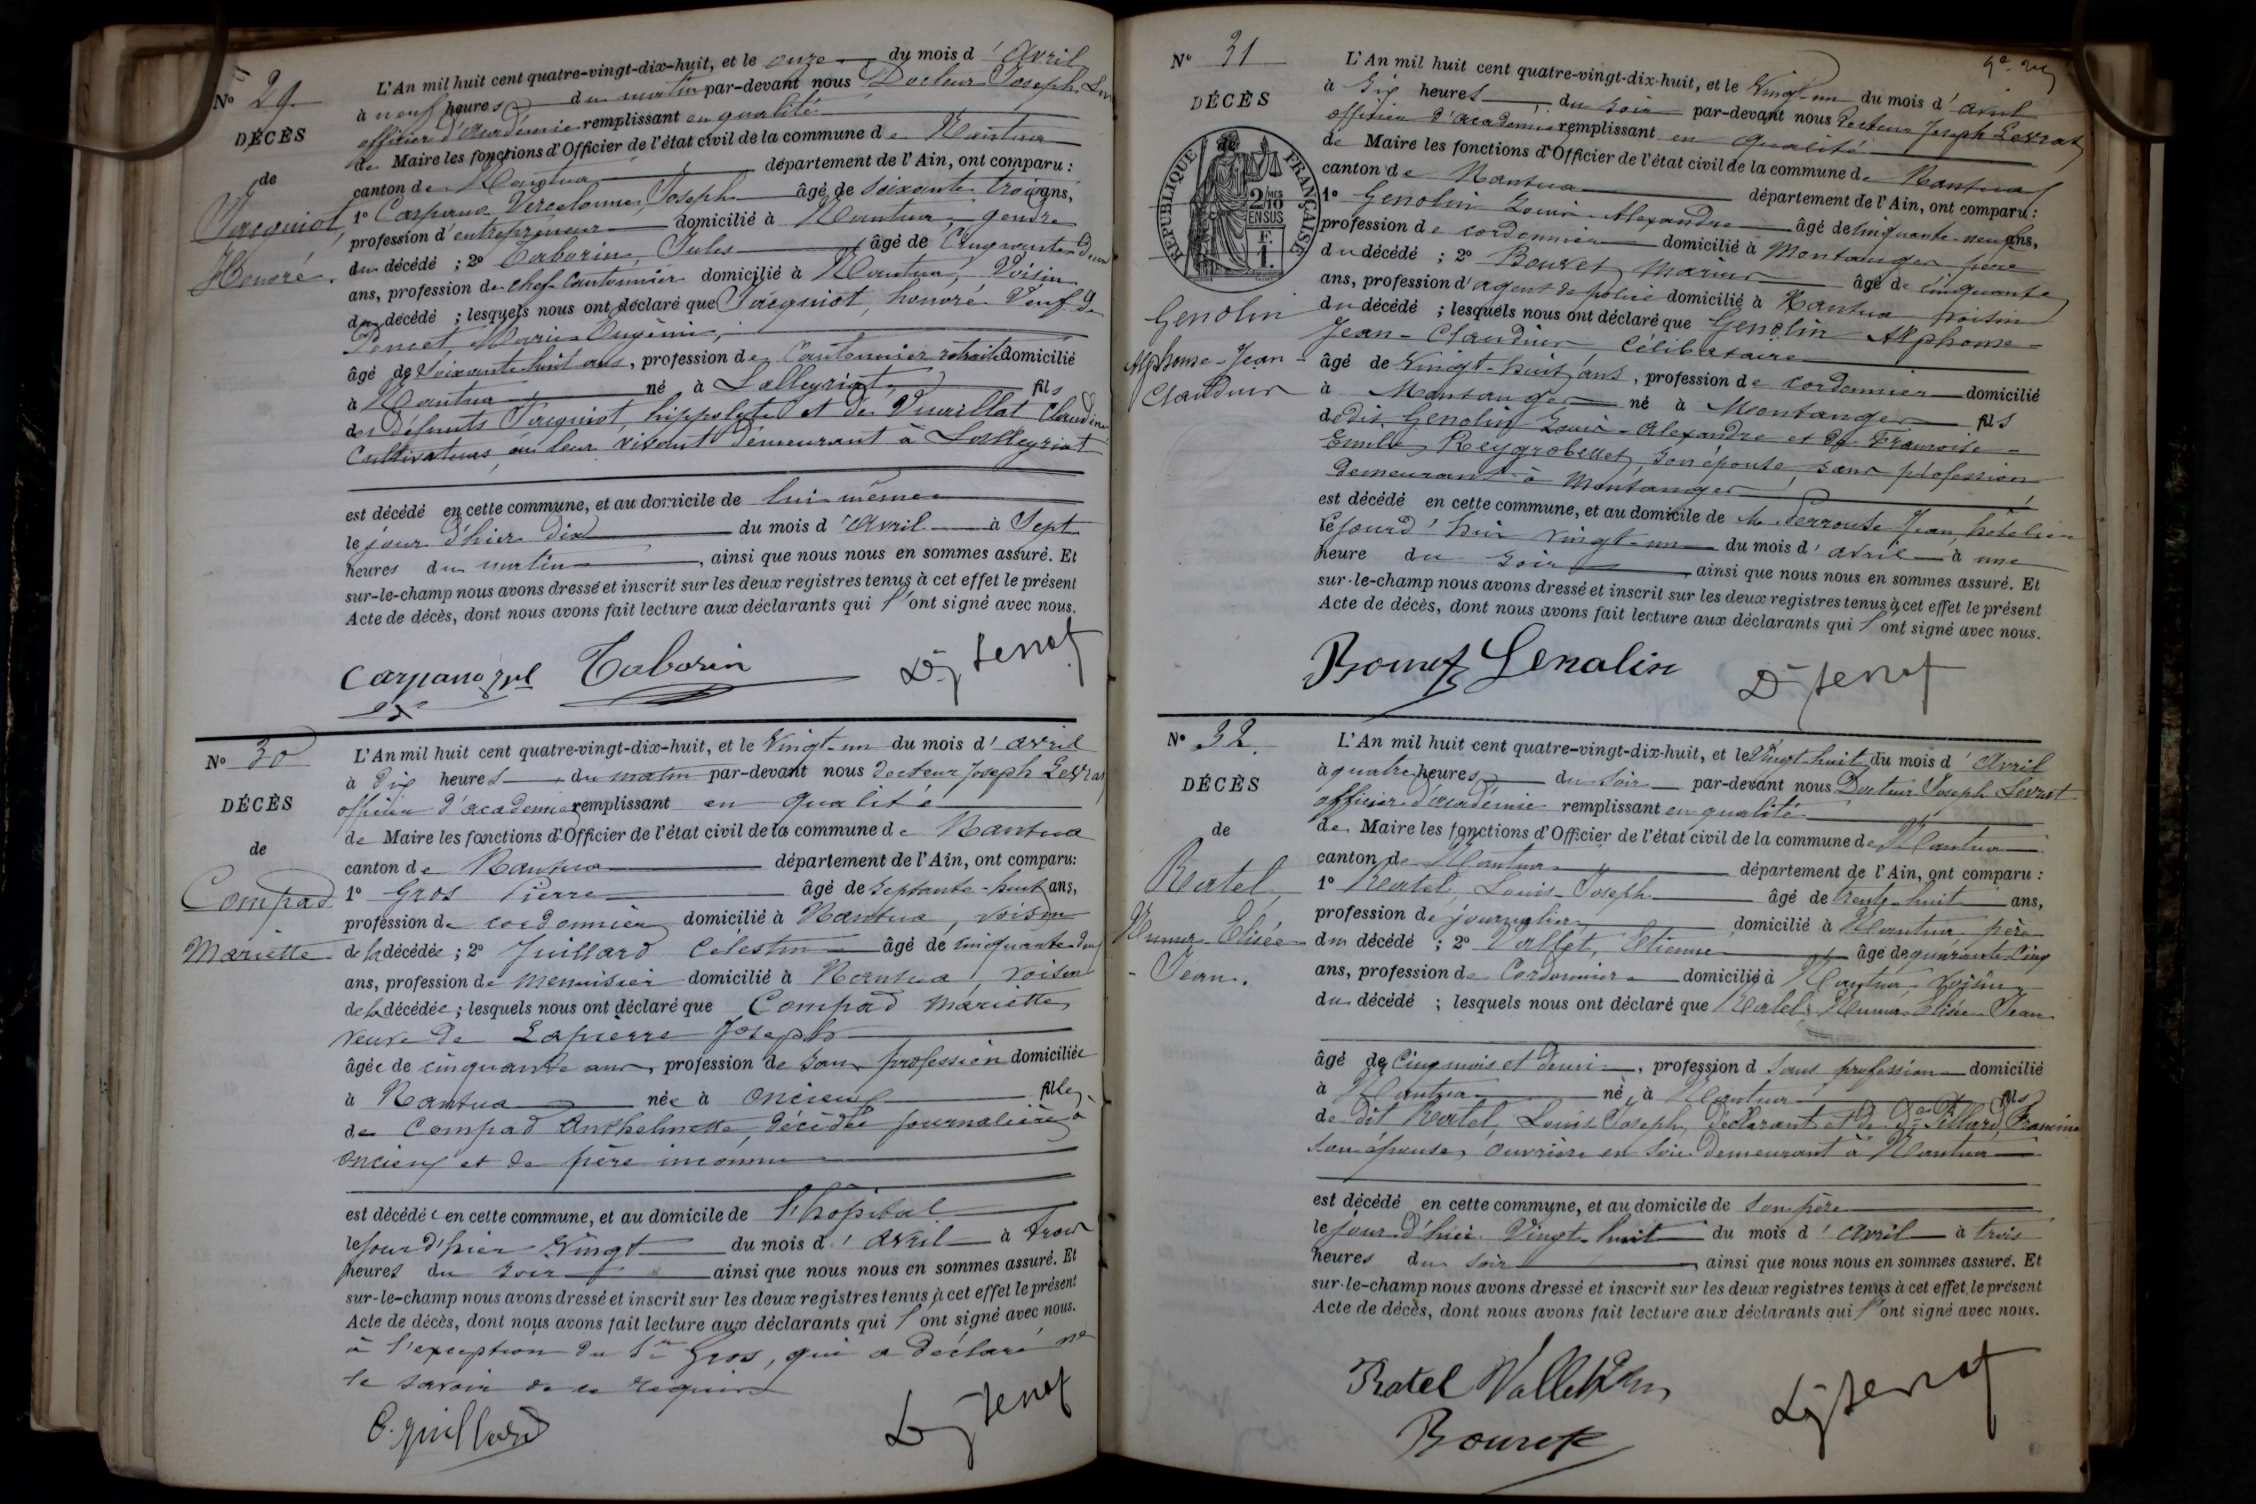 N° 29
DÉCÈS
de
Jacquiot,
Honoré.
L'An mil huit cent quatre-vingt-dix-huit, et le onze du mois d'Avril
à neuf heures du matin par-devant nous Docteur Joseph
officier d'académie remplissant en qualité
de Maire les fonctions d'Officier de l'état civil de la commune de Nantua
canton de Nantua département de l'Ain, ont comparu :
1° Carpano Joseph âgé de soixante trois ans,
profession d'entrepreneur domicilié à Nantua, gendre
du décédé ; 2° Taborin, Jules âgé de Cinquante deux
ans, profession de chef Cantonnier domicilié à Nantua, Voisin
du décédé ; lesquels nous ont déclaré que Jacquiot, honoré Veuf de
Poncet Marie Eugénie,
âgé de Soixante huit ans, profession de Cantonnier retraité domicilié
à Nantua né à Lalleyriat fils
des défunts Jacquiot hippolyte et de Vuaillat Claudine
Cultivateurs en leur vivant demeurant à Lalleyriat
est décédé en cette commune, et au domicile de lui même
le jour d'hier dix du mois d'Avril à Sept
heures du matin, ainsi que nous nous en sommes assuré. Et
sur-le-champ nous avons dressé et inscrit sur les deux registres tenus à cet effet le présent
Acte de décès, dont nous avons fait lecture aux déclarants qui l'ont signé avec nous.
Carpano Taborin
N° 30
DÉCÈS
de
Compad
Mariette
L'An mil huit cent quatre-vingt-dix-huit, et le Vingt-un du mois d'avril
à dix heures du matin par-devant nous Docteur Joseph Levrat
officier d'academie remplissant en qualité
de Maire les fonctions d'Officier de l'état civil de la commune de Nantua
canton de Nantua département de l'Ain, ont comparu :
1° Gros Pierre âgé de septante-huit ans,
profession de cordonnier domicilié à Nantua, voisin
de la décédée ; 2° Juillard Célestin âgé de cinquante deux
ans, profession de menuisier domicilié à Nantua, voisin
de la décédée ; lesquels nous ont déclaré que Compad Mariette
veuve de Lapierre Joseph
âgée de cinquante ans, profession de sans profession domiciliée
à Nantua née à Oncieux fille
de Compad Anthelmette, décédée journalière à
Oncieux et de père inconnu
est décédée en cette commune, et au domicile de l'hôpital
le jour d'hier Vingt du mois d'avril à trois
heures du soir ainsi que nous nous en sommes assuré. Et
sur-le-champ nous avons dressé et inscrit sur les deux registres tenus à cet effet le présent
Acte de décès, dont nous avons fait lecture aux déclarants qui l'ont signé avec nous.
à l'exception du Sr Gros, qui a déclaré ne
le savoir de ce requis
C. Juillard
N° 31
DÉCÈS
RÉPUBLIQUE FRANÇAISE
2/10 EN SUS
Genolin
Alphonse-Jean-
Claudius
L'An mil huit cent quatre-vingt-dix-huit, et le Vingt-un du mois d'avril
à six heures du soir par-devant nous Docteur Joseph Levrat
officier d'academie remplissant en qualité
de Maire les fonctions d'Officier de l'état civil de la commune de Nantua
canton de Nantua département de l'Ain, ont comparu :
1° Genolin Louis Alexandre âgé de cinquante-neuf ans,
profession de cordonnier domicilié à Montanges père
du décédé ; 2° Bouvet Marius âgé de cinquante
ans, profession d'agent de police domicilié à Nantua voisin
du décédé ; lesquels nous ont déclaré que Genolin Alphonse-
Jean-Claudius Célibataire
âgé de Vingt-huit ans, profession de cordonnier domicilié
à Montanges né à Montanges fils
de dit Genolin Louis-Alexandre et de Françoise-
Emilie Reygrobellet son épouse, sans profession
demeurant à Montanges
est décédé en cette commune, et au domicile de Mr Perrouse Jean, hôtelier
le jourd'hui vingt-un du mois d'avril à une
heure du soir ainsi que nous nous en sommes assuré. Et
sur-le-champ nous avons dressé et inscrit sur les deux registres tenus à cet effet le présent
Acte de décès, dont nous avons fait lecture aux déclarants qui l'ont signé avec nous.
Bouvet Genolin
N° 32.
DÉCÈS
de
Ratel,
Numa-Elisée-
-Jean.
L'An mil huit cent quatre-vingt-dix-huit, et le Vingt-huit du mois d'Avril
à quatre heures du soir par-devant nous Docteur Joseph Levrat
officier d'académie remplissant en qualité
de Maire les fonctions d'Officier de l'état civil de la commune de Nantua
canton de Nantua département de l'Ain, ont comparu :
1° Ratel, Louis-Joseph âgé de trente-huit ans,
profession de journalier domicilié à Nantua père
du décédé ; 2° Vallet, Etienne âgé de quarante Cinq
ans, profession de Cordonnier domicilié à Nantua, voisin
du décédé ; lesquels nous ont déclaré que Ratel, Numa Elisée Jean
âgé de Cinq mois et demi, profession d sans profession domicilié
à Nantua né à Nantua fils
de dit Ratel, Louis Joseph, déclarant et de Francine
son épouse, ouvrière en soie demeurant à Nantua
est décédé en cette commune, et au domicile de son père
le jour d'hier Vingt-huit du mois d'avril à trois
heures du soir, ainsi que nous nous en sommes assuré. Et
sur-le-champ nous avons dressé et inscrit sur les deux registres tenus à cet effet le présent
Acte de décès, dont nous avons fait lecture aux déclarants qui l'ont signé avec nous.
Ratel Vallet
Bouvet